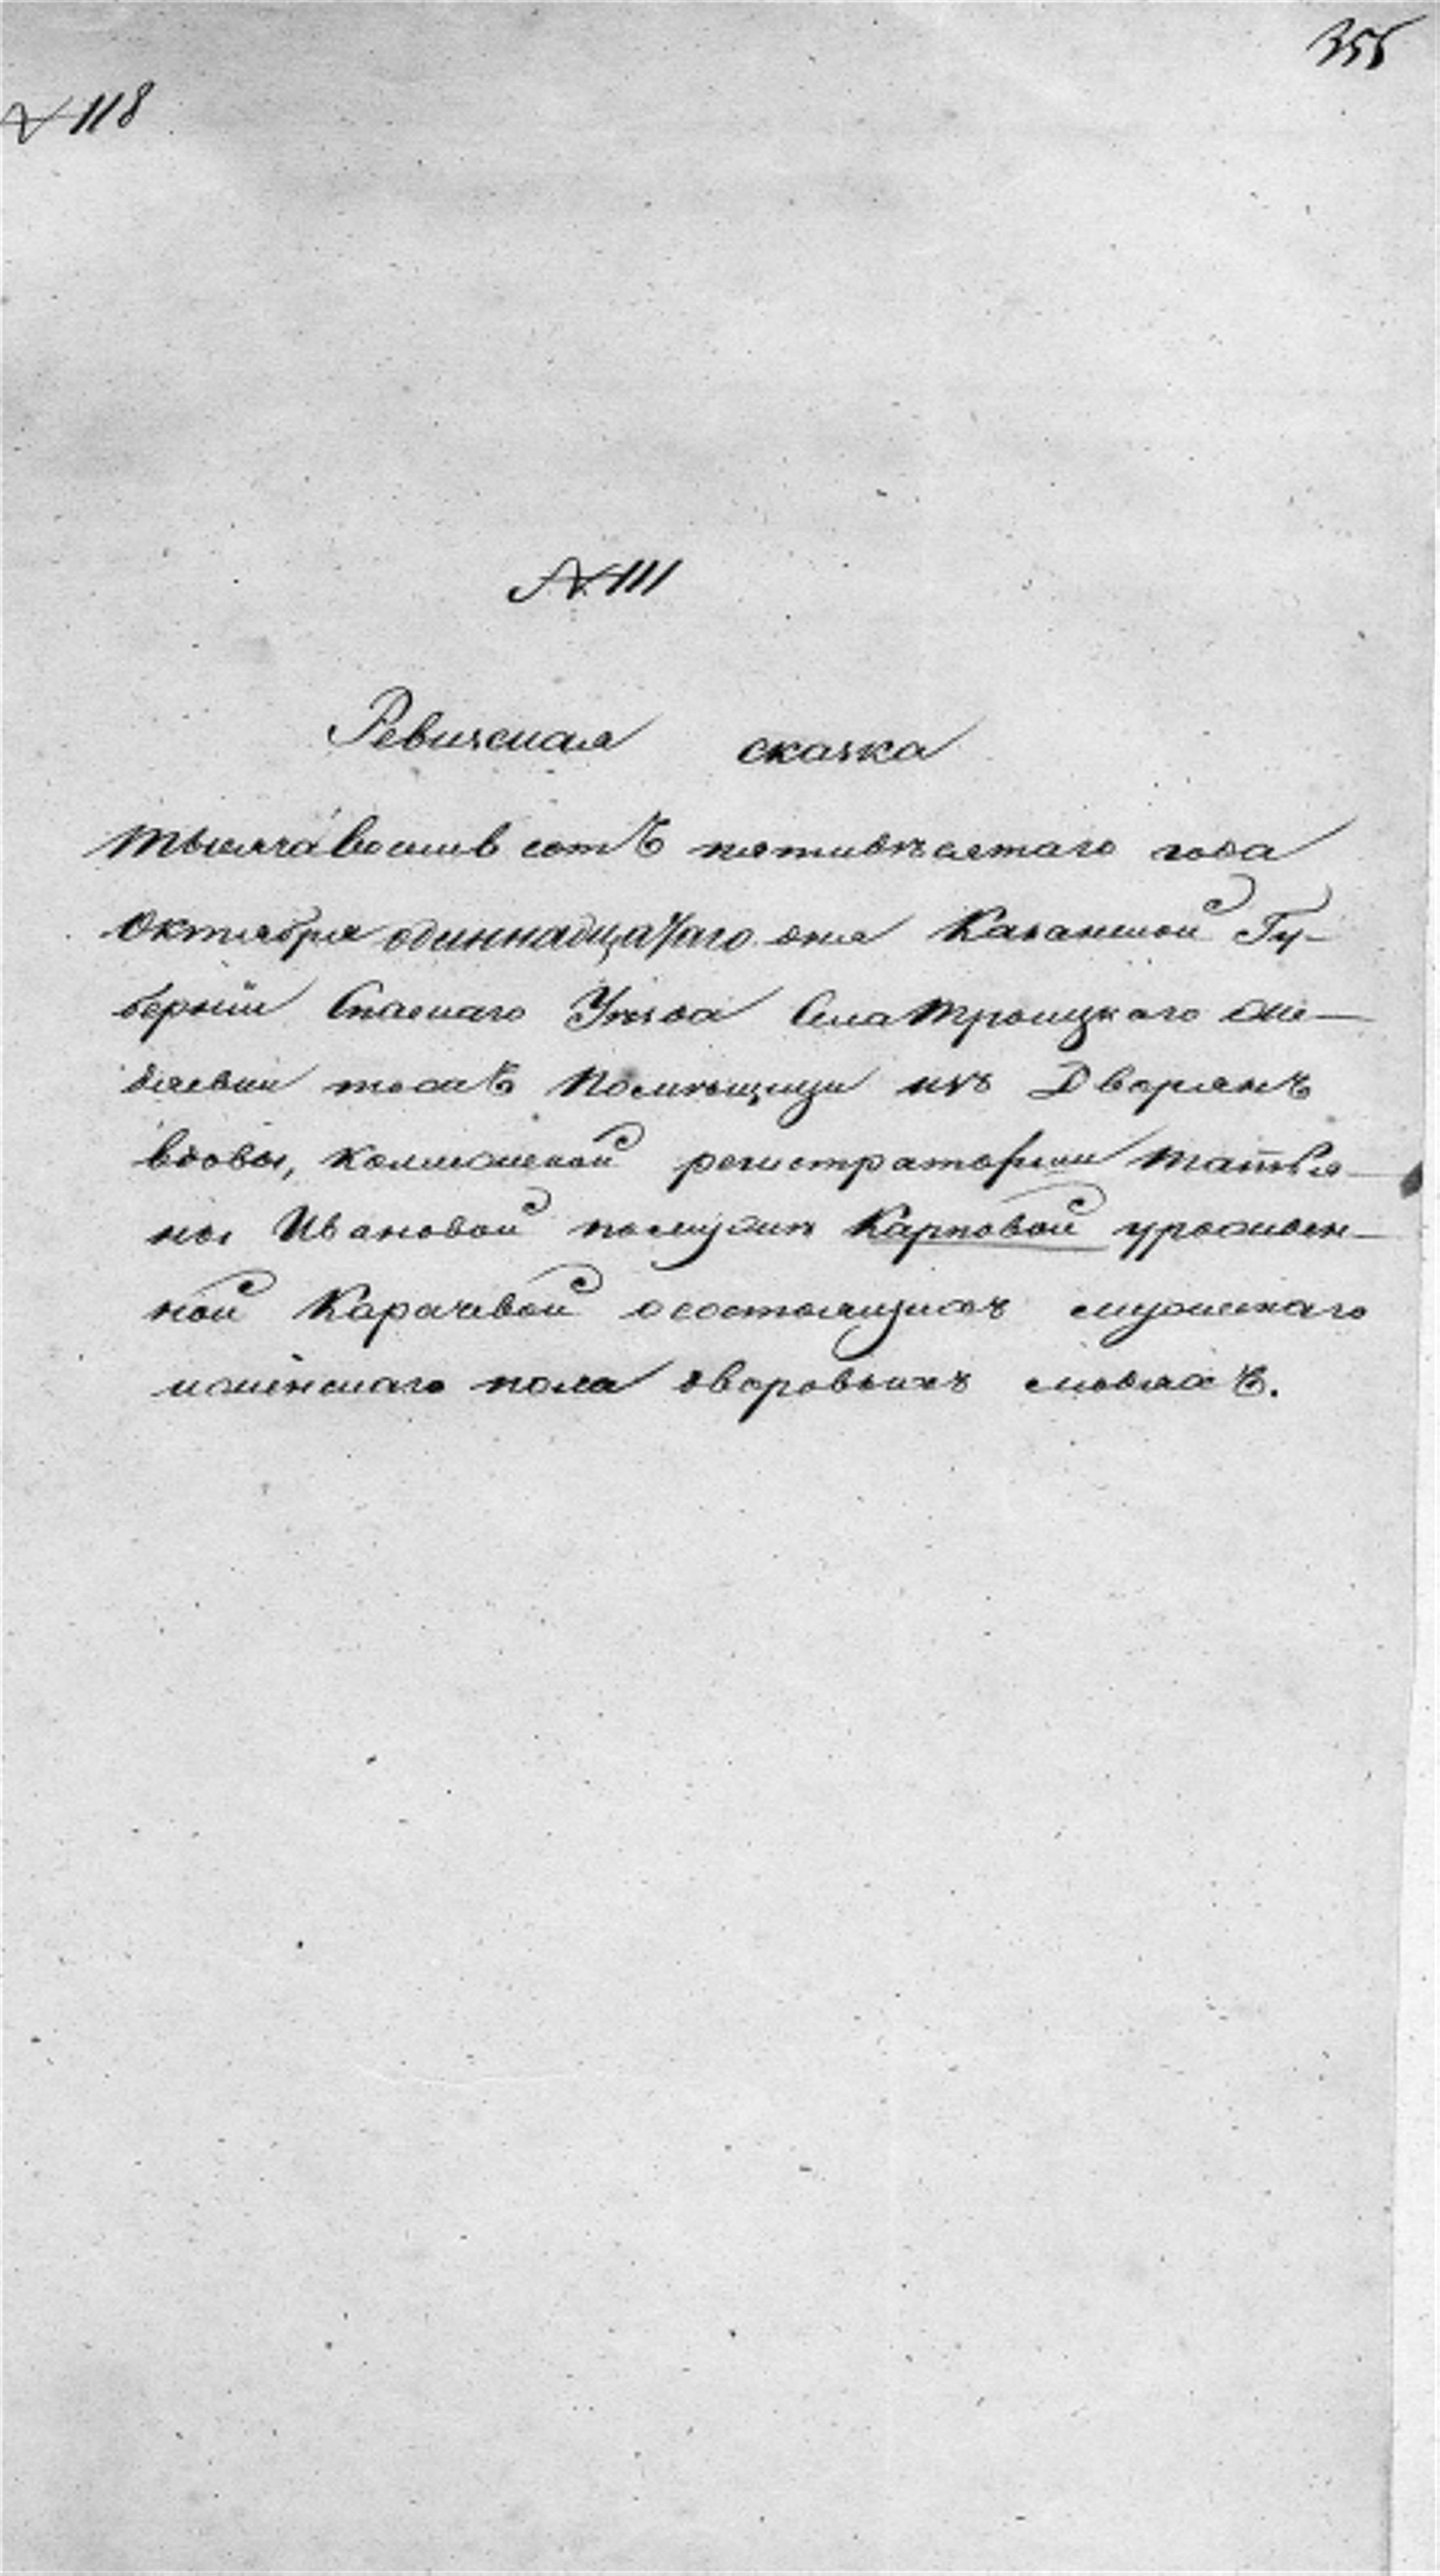 355
№ 118
№ 111
Ревижская сказка
тысяча восемь сотъ пятидесятаго года
Октября одиннадцатаго дня Казанской Гу-
берніи Спаскаго Уѣзда Села Троицкаго
тожъ Помѣщицы изъ Дворянъ
вдовы, коллежской регистраторши Татья-
ны Ивановой по мужѣ Карповой урожден-
ной Карачевой о состоящихъ мужескаго
и женскаго пола дворовыхъ людяхъ.